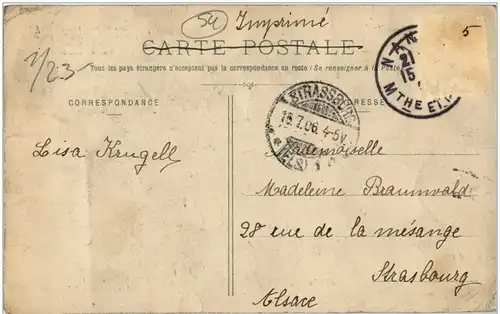 54
Imprimé
5
1/23
CARTE POSTALE
Tous les pays étrangers n'acceptent pas la correspondance au recto (Se renseigner à la Poste)
CORRESPONDANCE
STRASSBURG
16.7.06. 4-5V
(ELS)
21
15
MTHE ET
Lisa Krugell
Mademoiselle
Madeleine Braunwald
28 rue de la mésange
Strasbourg
Alsace